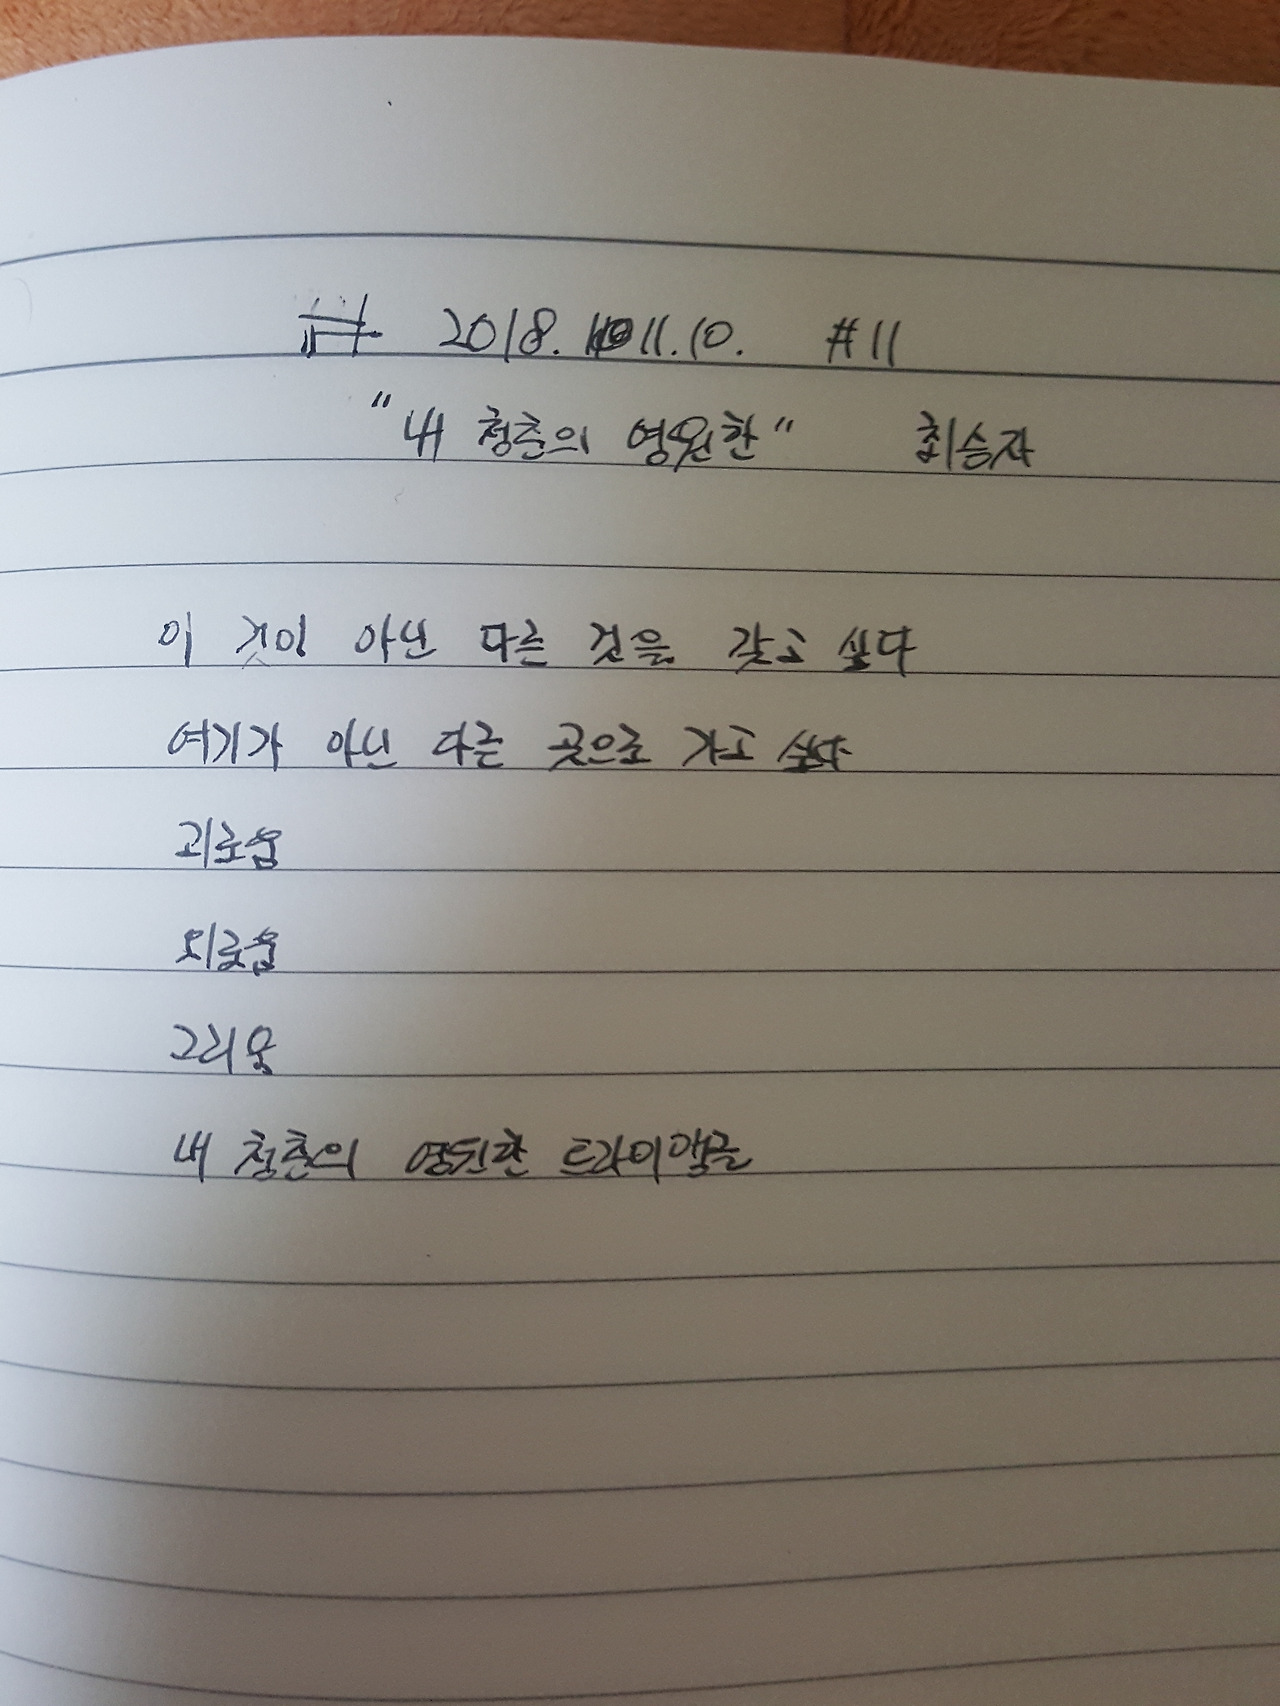 # 2018. 11.10. #11
"내 청춘의 영원한" 최승자
이 것이 아닌 다른 것을 갖고 싶다
여기가 아닌 다른 곳으로 가고 싶다
괴로움
외로움
그리움
내 청춘의 영원한 트라이앵글